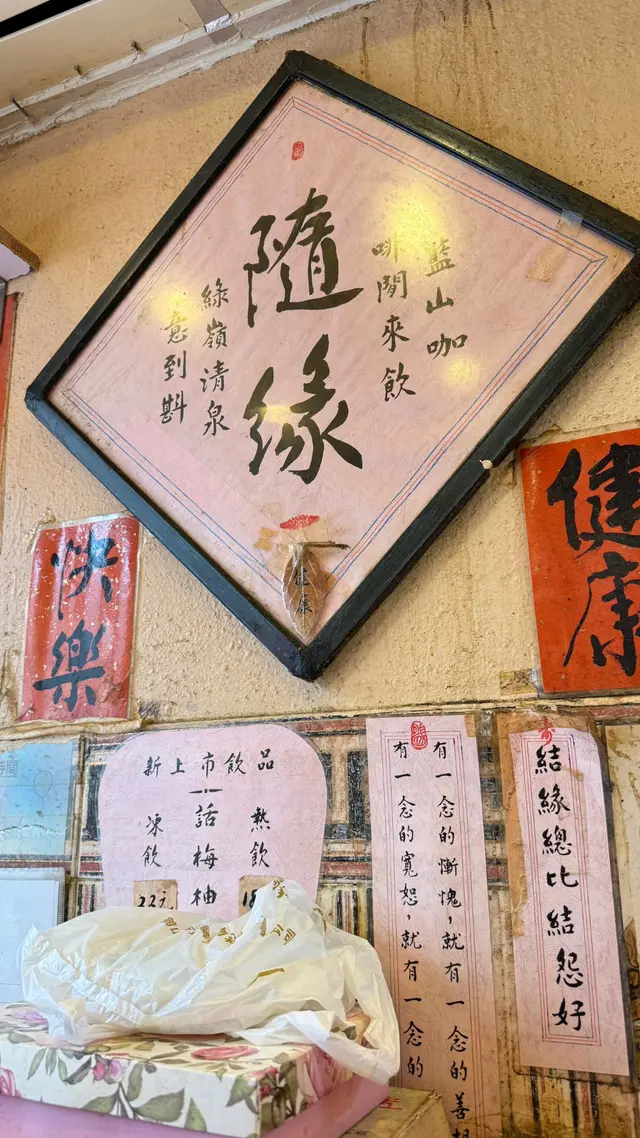 藍山咖
啡閒來飲
隨緣
綠嶺清泉
意到斟
健康
健康
快樂
新上市飲品
熱飲
18
話梅柚
凍飲
22元
結緣總比結怨好
有一念的慚愧,就有一念的善
有一念的寬恕,就有一念的